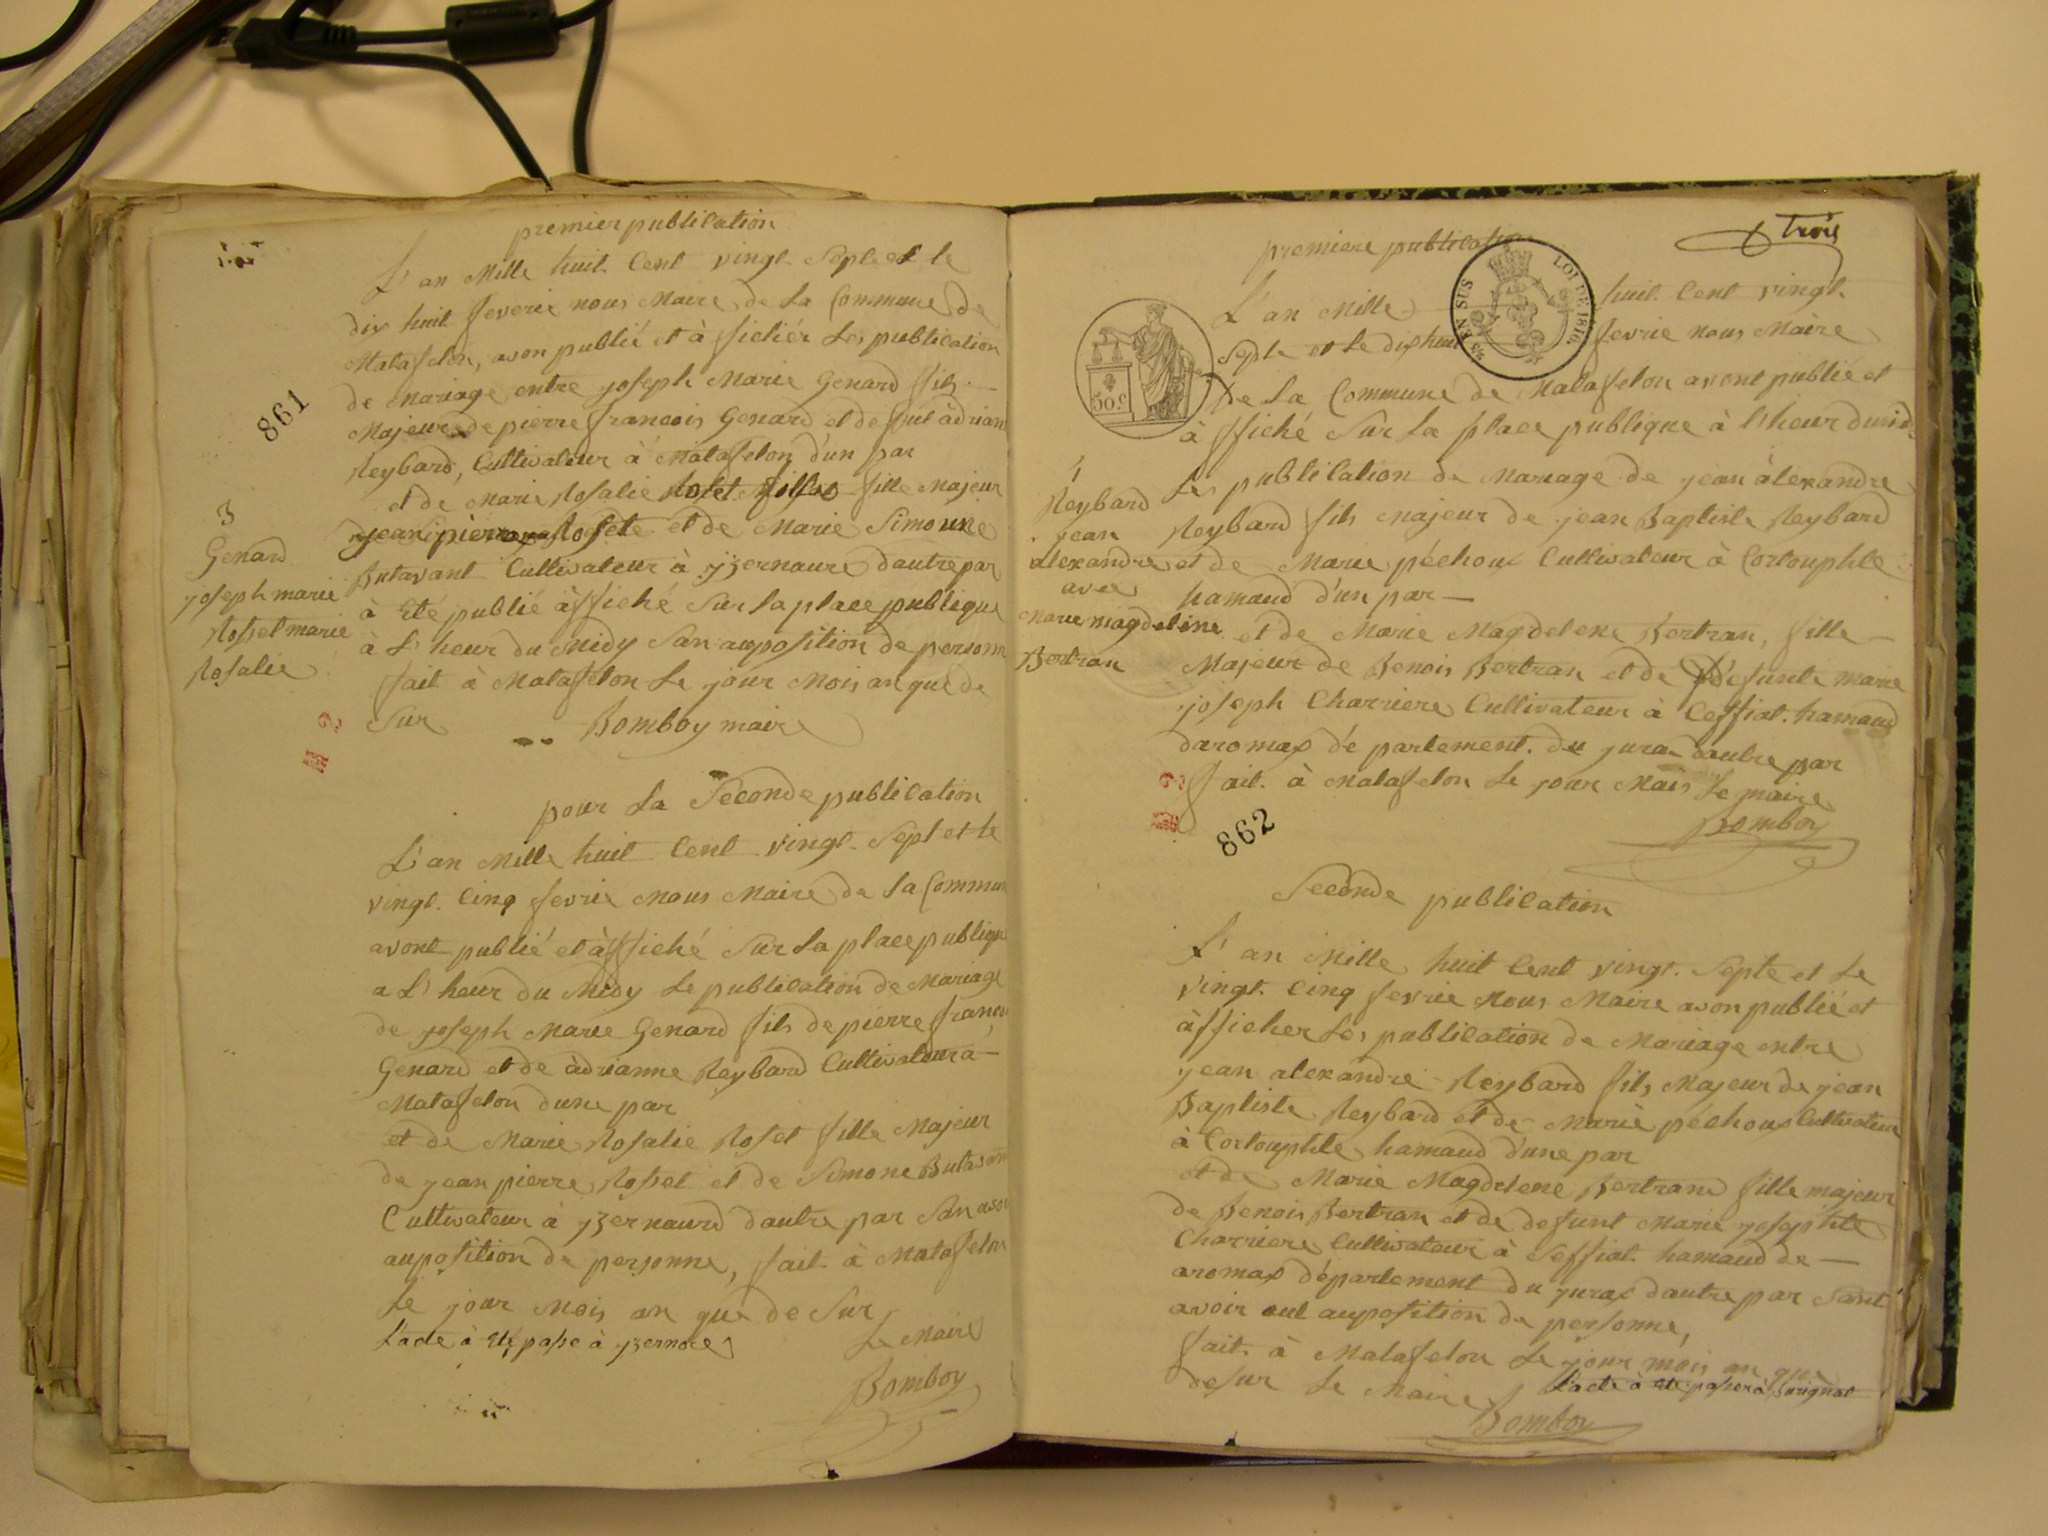 premier publication
L'an Mille huit Cent vingt Septe et le
dix huit feverie nous Maire de la Commune de
Matafelon, avon publié et à fichér Les publication
de Mariage entre joseph Marie Genard fils
Majeur de pierre francois Genard et de fut àdrian
Reybard, Cultivateur à Matafelon d'un par
et de Marie Rosalie Roset fille Majeur
jean pierre Rosete et de Marie Simonne
Butavant Cultivateur à yzernaure dautre par
à Eté publié àffiché Sur la place publique
à L'heur du Midy San auposition de personne
fait à Matafelon Le jour Mois an que de
Sur Bomboy maire
861
3
Genard
joseph marie
Rosset marie
Rosalie
pour La Seconde publication
L'an Mille huit Cent vingt Sept et le
vingt Cinq fevrie Nous Maire de la Commun
avont publié et àffiché Sur la place publique
a L'heur du Midy Le publication de Mariage
de joseph Marie Genard fils de pierre francois
Genard et de àdrianne Reybard Cultivateur à
Matafelon dune par
et de Marie Rosalie Roset fille Majeur
de jean pierre Rosset et de Simone Butavant
Cultivateur à yzernaurd dautre par San avoir
auposition de personne, fait à Matafelon
Le jour Mois an que de Sur
L'acte à Eté passé à yzernore
Le Maire
Bomboy
trois
premiere publication
EN SUS
LOI DE 1816
50.c
L'an Mille huit Cent vingt
Septe et le dixhuit fevrie nous Maire
de la Commune de Matafelon avont publié et
à ffiché Sur La place publique à l'heur du mid
Les publication de Mariage de jean àlexandre
Reybard fils Majeur de jean Baptiste Reybard
et de Marie péchoux Cultivateur à Cortouphle
hamaud d'un par
et de Marie Magdelene Bertran, fille
Majeur de Benois Bertran et de défunte marie
joseph Charriere Cultivateur à Ceffiat hamaud
daromax dé partement du jura dautre par
fait à Matafelon Le jour Mois Le maire
Bomboy
1
Reybard
jean
alexandre
avec
Marie magdeline
Bertran
862
Seconde publication
L'an Mille huit Cent vingt Septe et Le
vingt Cinq fevrie Nous Maire avon publié et
àfficher Les publication de Mariage entre
jean alexandre Reybard fils Majeur de jean
Baptiste Reybard et de Marie péchoux Cultivateur
à Cortouphle hamaud d'une par
et de Marie Magdelene Bertrand fille majeur
de Benois Bertran et de defunt Marie josephte
Charriere Cultivateur à Seffiat hamaud de
aromax département du jurax dautre par Sant
avoir eut auposition de personne,
fait à Matafelon Le jour mois an que
desur Le Maire L'acte à Eté passer à
Bomboy